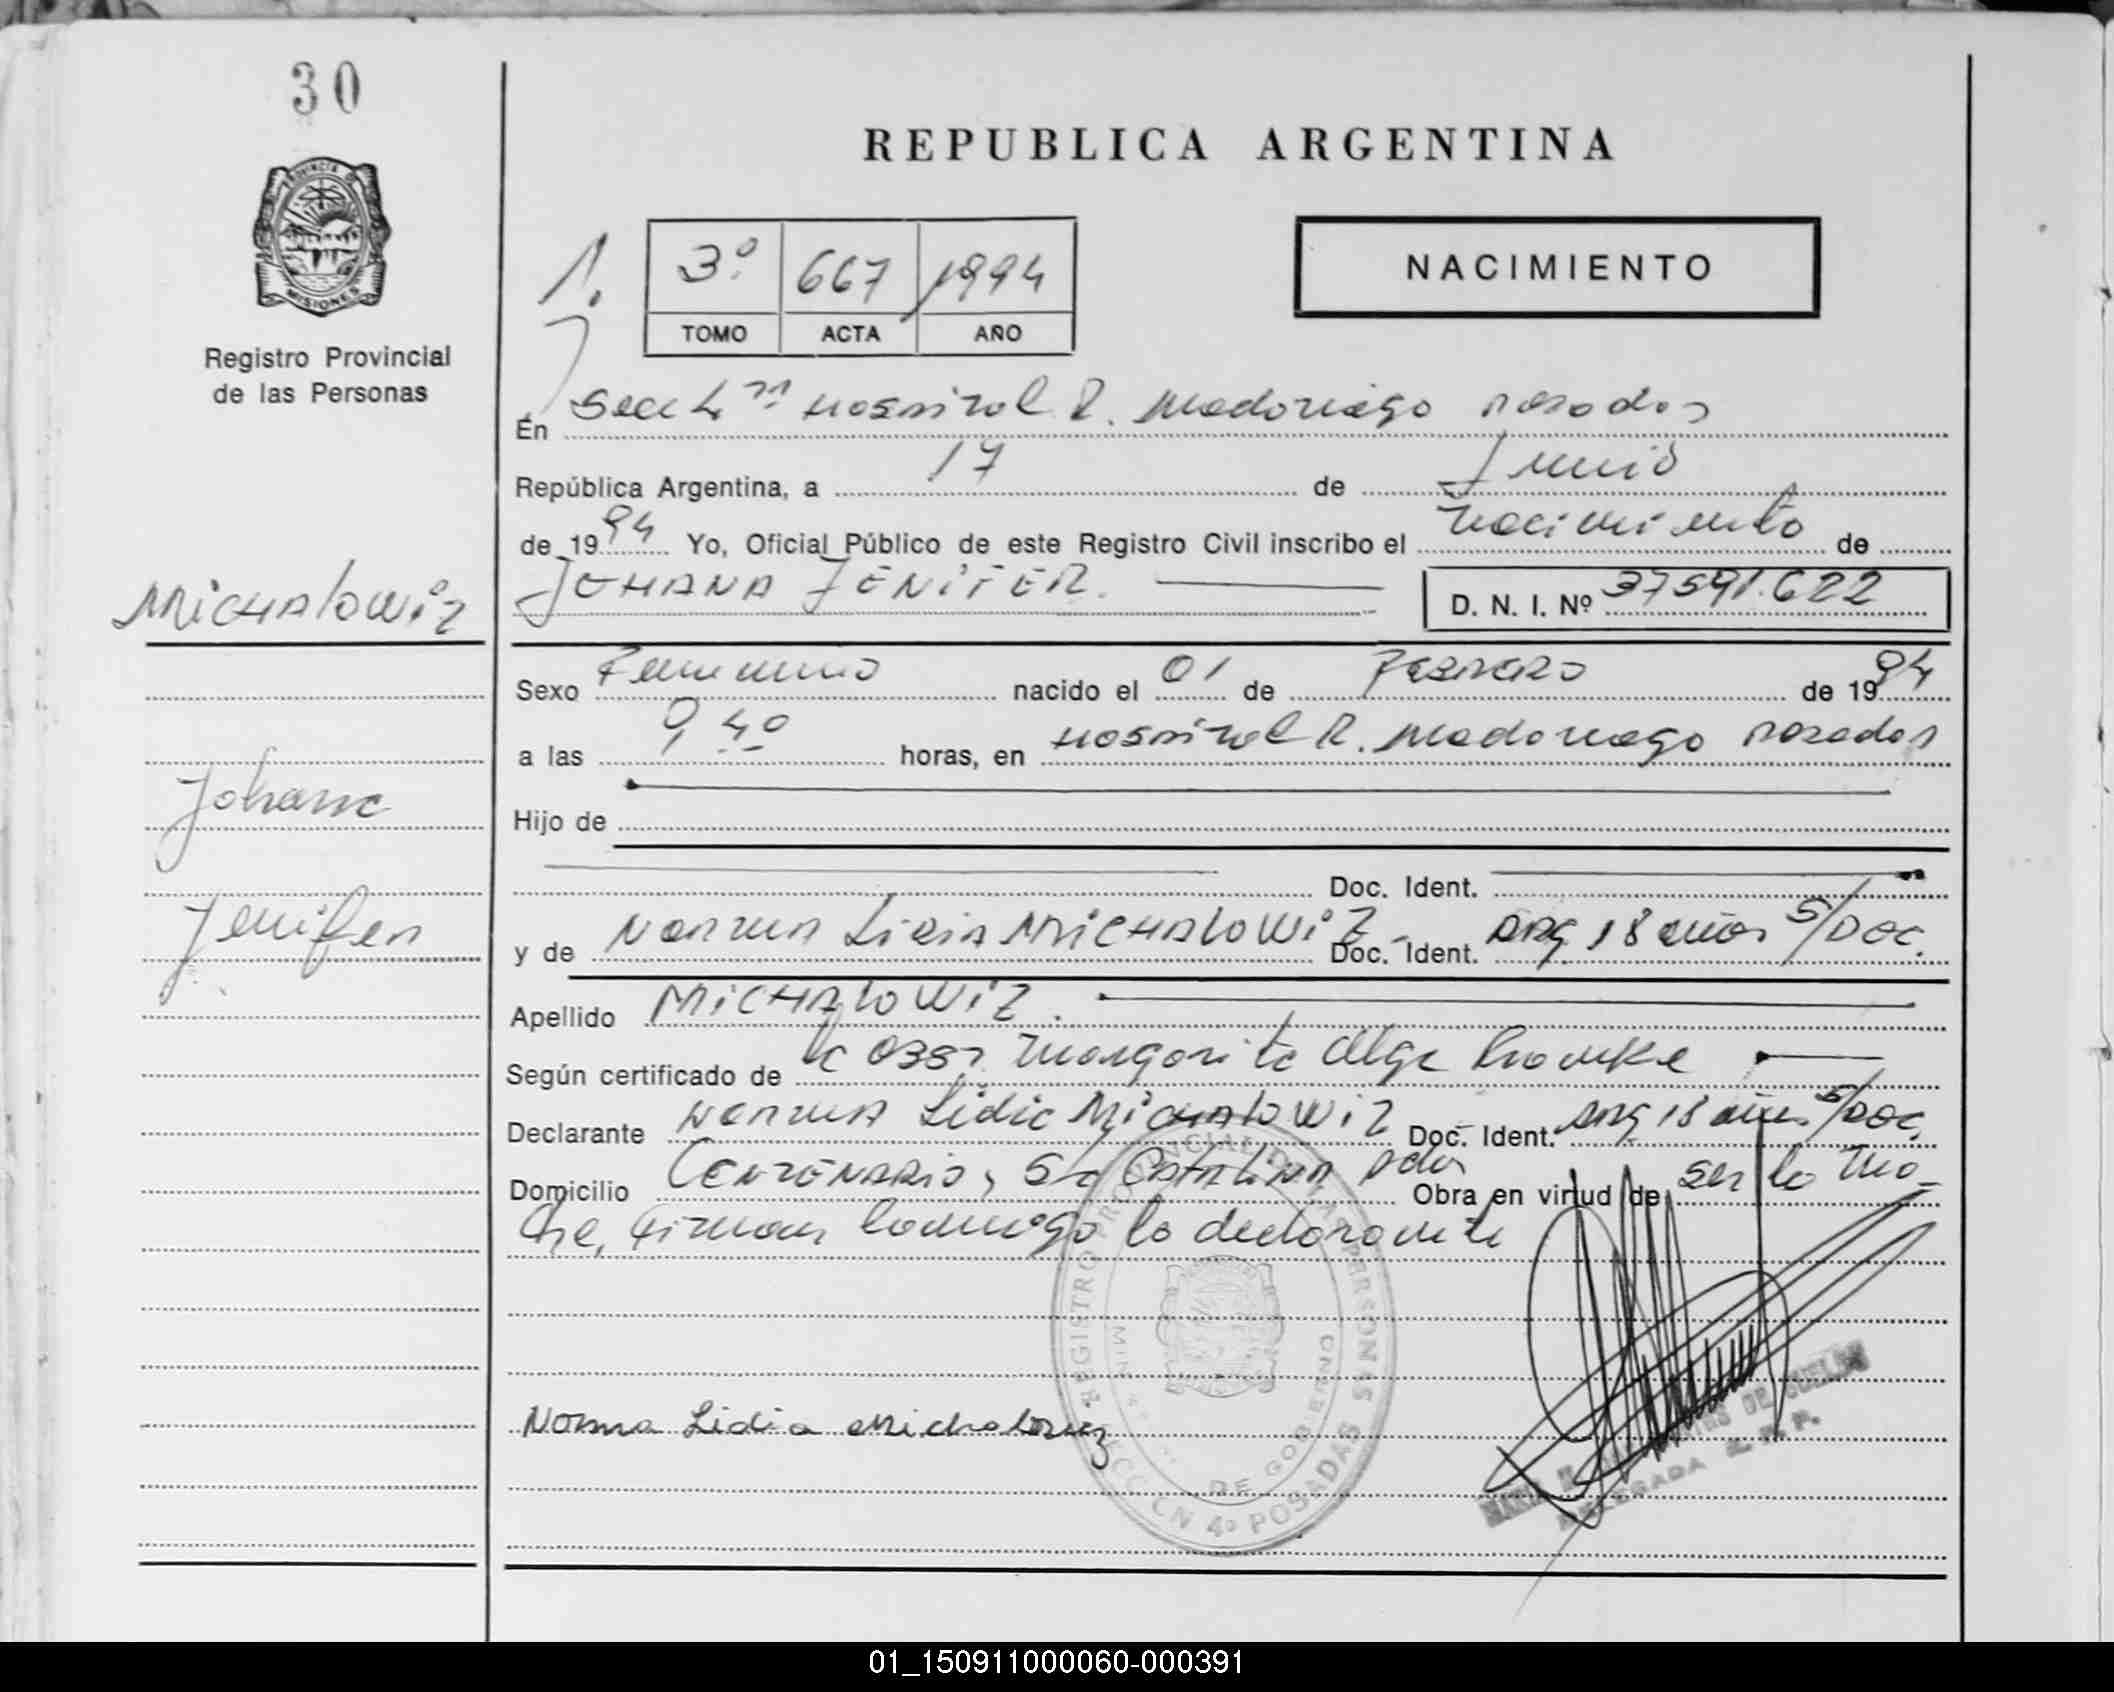 30
REPUBLICA ARGENTINA
PROVINCIA DE
MISIONES
Registro Provincial
de las Personas
1.
3º 667 1994
TOMO ACTA AÑO
NACIMIENTO
En Secc 4ta Hospital R. Madariaga Posadas
República Argentina, a 17 de Junio
de 1994 Yo, Oficial Público de este Registro Civil inscribo el nacimiento de
JOHANA JENIFER.
D. N. I. Nº 37591.622
MICHALOWIZ
Johana
Jenifer
Sexo Femenino nacido el 01 de Febrero de 1994
a las 9,40 horas, en Hospital R. Madariaga Posadas
Hijo de
Doc. Ident.
y de Norma Lidia MICHALOWIZ- Doc. Ident. ARG 18 años S/DOC.
Apellido MICHALOWIZ.
Según certificado de Margarita Olga
Declarante Norma Lidia MICHALOWIZ Doc. Ident. ARG 18 años S/DOC.
Domicilio CENTENARIO, Sta CATALINA Pdas Obra en virtud de ser la ma-
dre, Firman conmigo la declarante
REGISTRO PROVINCIAL DE LAS PERSONAS
DE GOBIERNO
4º POSADAS
Norma Lidia Michalowiz
DELEGADA R. P. P.
01_150911000060-000391